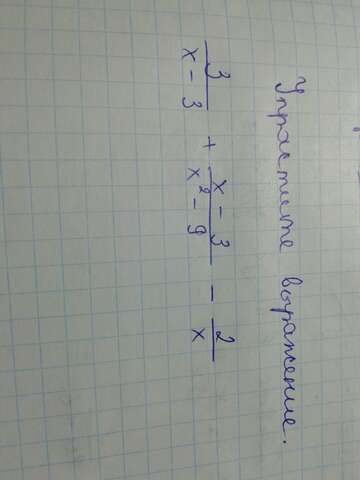 Упростите выражение.
3/(x - 3) + (x - 3)/(x² - 9) - 2/x